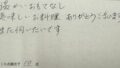 温かいおもてなし
美味しいお料理 ありがとうございま
また伺いたいです